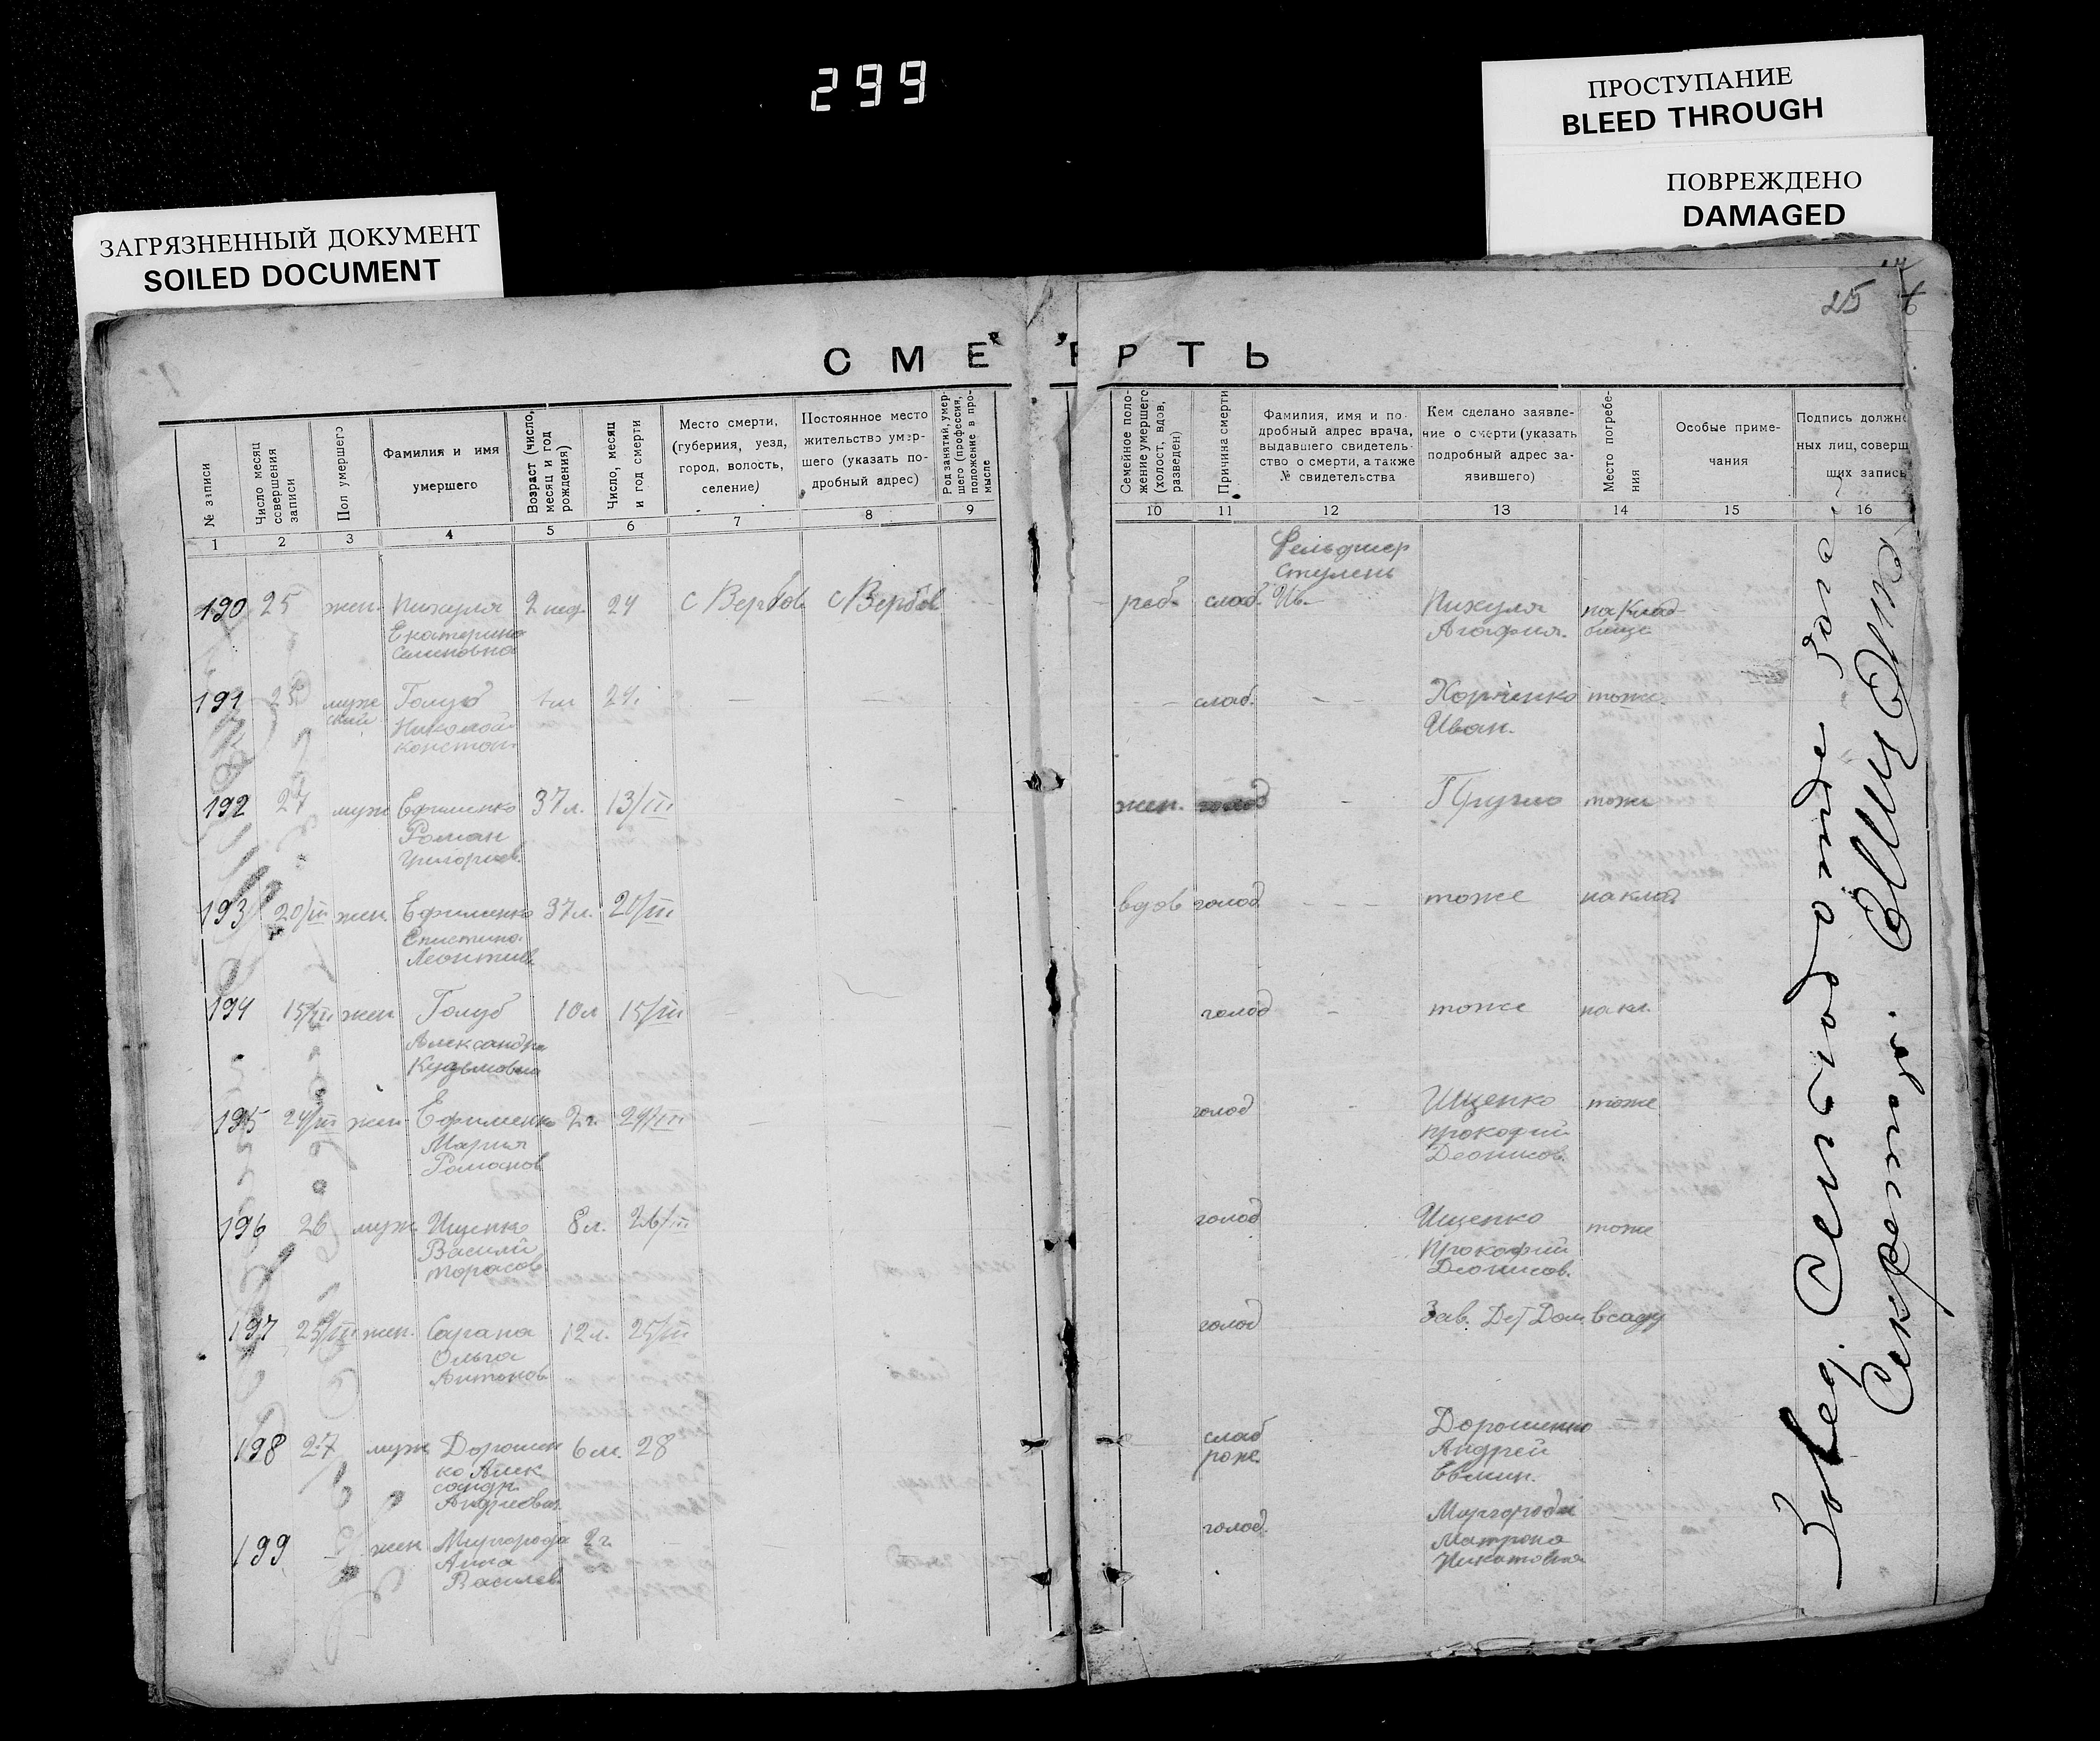 299
ПРОСТУПАНИЕ
BLEED THROUGH
ПОВРЕЖДЕНО
DAMAGED
ЗАГРЯЗНЕННЫЙ ДОКУМЕНТ
SOILED DOCUMENT
25
СМЕРТЬ
№ записи
Число месяц
совершения
записи
Пол умершего
Фамилия и имя
умершего
Возраст (число,
месяц и год
рождения)
Число, месяц
и год смерти
Место смерти,
(губерния, уезд,
город, волость,
селение)
Постоянное место
жительство умер-
шего (указать по-
дробный адрес)
Род занятий, умер-
шего (профессия,
положение в про-
мысле
Семейное поло-
жение умершего
(холост, вдов,
разведен)
Причина смерти
Фамилия, имя и по-
дробный адрес врача,
выдавшего свидетель-
ство о смерти, а также
№ свидетельства
Кем сделано заявле-
ние о смерти (указать
подробный адрес за-
явившего)
Место погребе-
ния
Особые приме-
чания
Подпись должн
ных лиц, соверш
щих запись
1 2 3 4 5 6 7 8 9 10 11 12 13 14 15 16
Фельдшер
Стулень
190 25 жен. Пихуля 2 нед. 24 с Вербов с Вербов реб. слаб. Ив. Пихуля на Клад
Екатерина Агафия. бище
Семеновна
191 25 муж Голуб 24 слаб. Хорченко тоже
ский Николай Иван.
Констан
192 27 муж Ефименко 37 л. 13/III жен. голод тоже
Роман
Григориев.
193 20/III жен Ефименко 37 л. 20/III вдов голод тоже на клад
Леонтиев
194 15/III жен Голуб 10 л 15/III голод тоже на кл.
Александра
Кузьмовна
195 24/III жен Ефименко 2 г. 24/III голод Ищенко тоже
Мария Прокофий
Романов Деонисов.
196 26 муж Ищенко 8 л. 26/III голод Ищенко тоже
Василий Прокофий
Тарасов Деонисов.
197 25/III жен. Сарана 12 л. 25/III голод Зав. Дет Дом в саду
Ольга
Антонов
198 27 муж Дорошен 6 м. 28 слаб Дорошенко
ко Алек рож. Андрей
сандр Евмин.
Андреевич.
199 жен Миргорода 2 г. голод. Миргородя
Анна Матрона
Василев. Никитовна
Завед.
Секретарь.